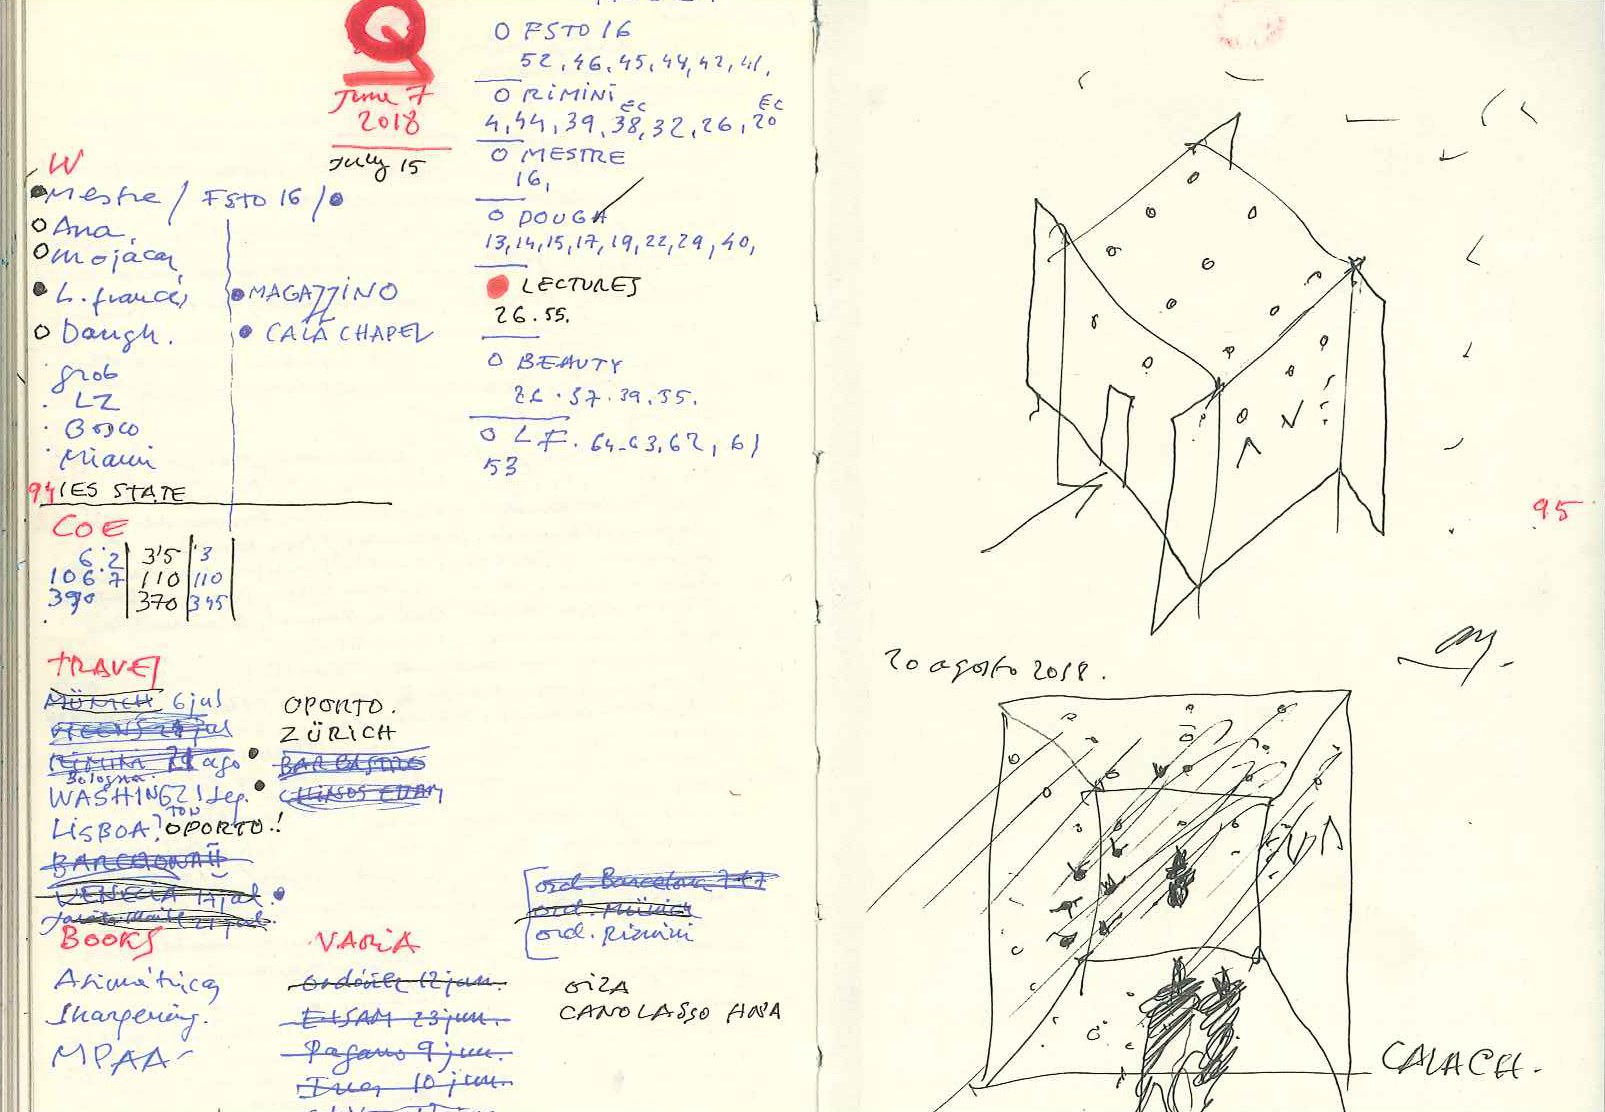 Q
June 7
2018
July 15
W
Mestre / FSTO 16 /
Ana
Mojacar
L. francés
MAGAZZINO
Dough.
CALA CHAPEL
grob
LZ
Bosco
Miami
94 IES STATE
COE
6.2 | 3'5 | 3
106 7 | 110 | 110
390 | 370 | 345
O FSTO 16
52, 46, 45, 44, 42, 41,
O RIMINI
EC EC
4, 44, 39, 38, 32, 26, 20
O MESTRE
16,
O DOUGH
13, 14, 15, 17, 19, 22, 29, 40,
LECTURES
26.55.
O BEAUTY
37.39.55.
O L F. 64-63, 62, 61
53
TRAVEL
MÜNICH 6 jul
ago
Bologna
WASHINGTON sep.
LISBOA? OPORTO.!
BARCELONA
VENECIA 17 jul.
OPORTO.
ZÜRICH
ord. Barcelona 7+7
ord. Münich
ord. Rimini
BOOKS
Sharpening.
MPAA
VARIA
12 jun.
ETSAM 23 jun.
Pagano 9 jun.
10 jun.
OIZA
CANOLASSO ANA
95
20 agosto 2018.
CALACH.